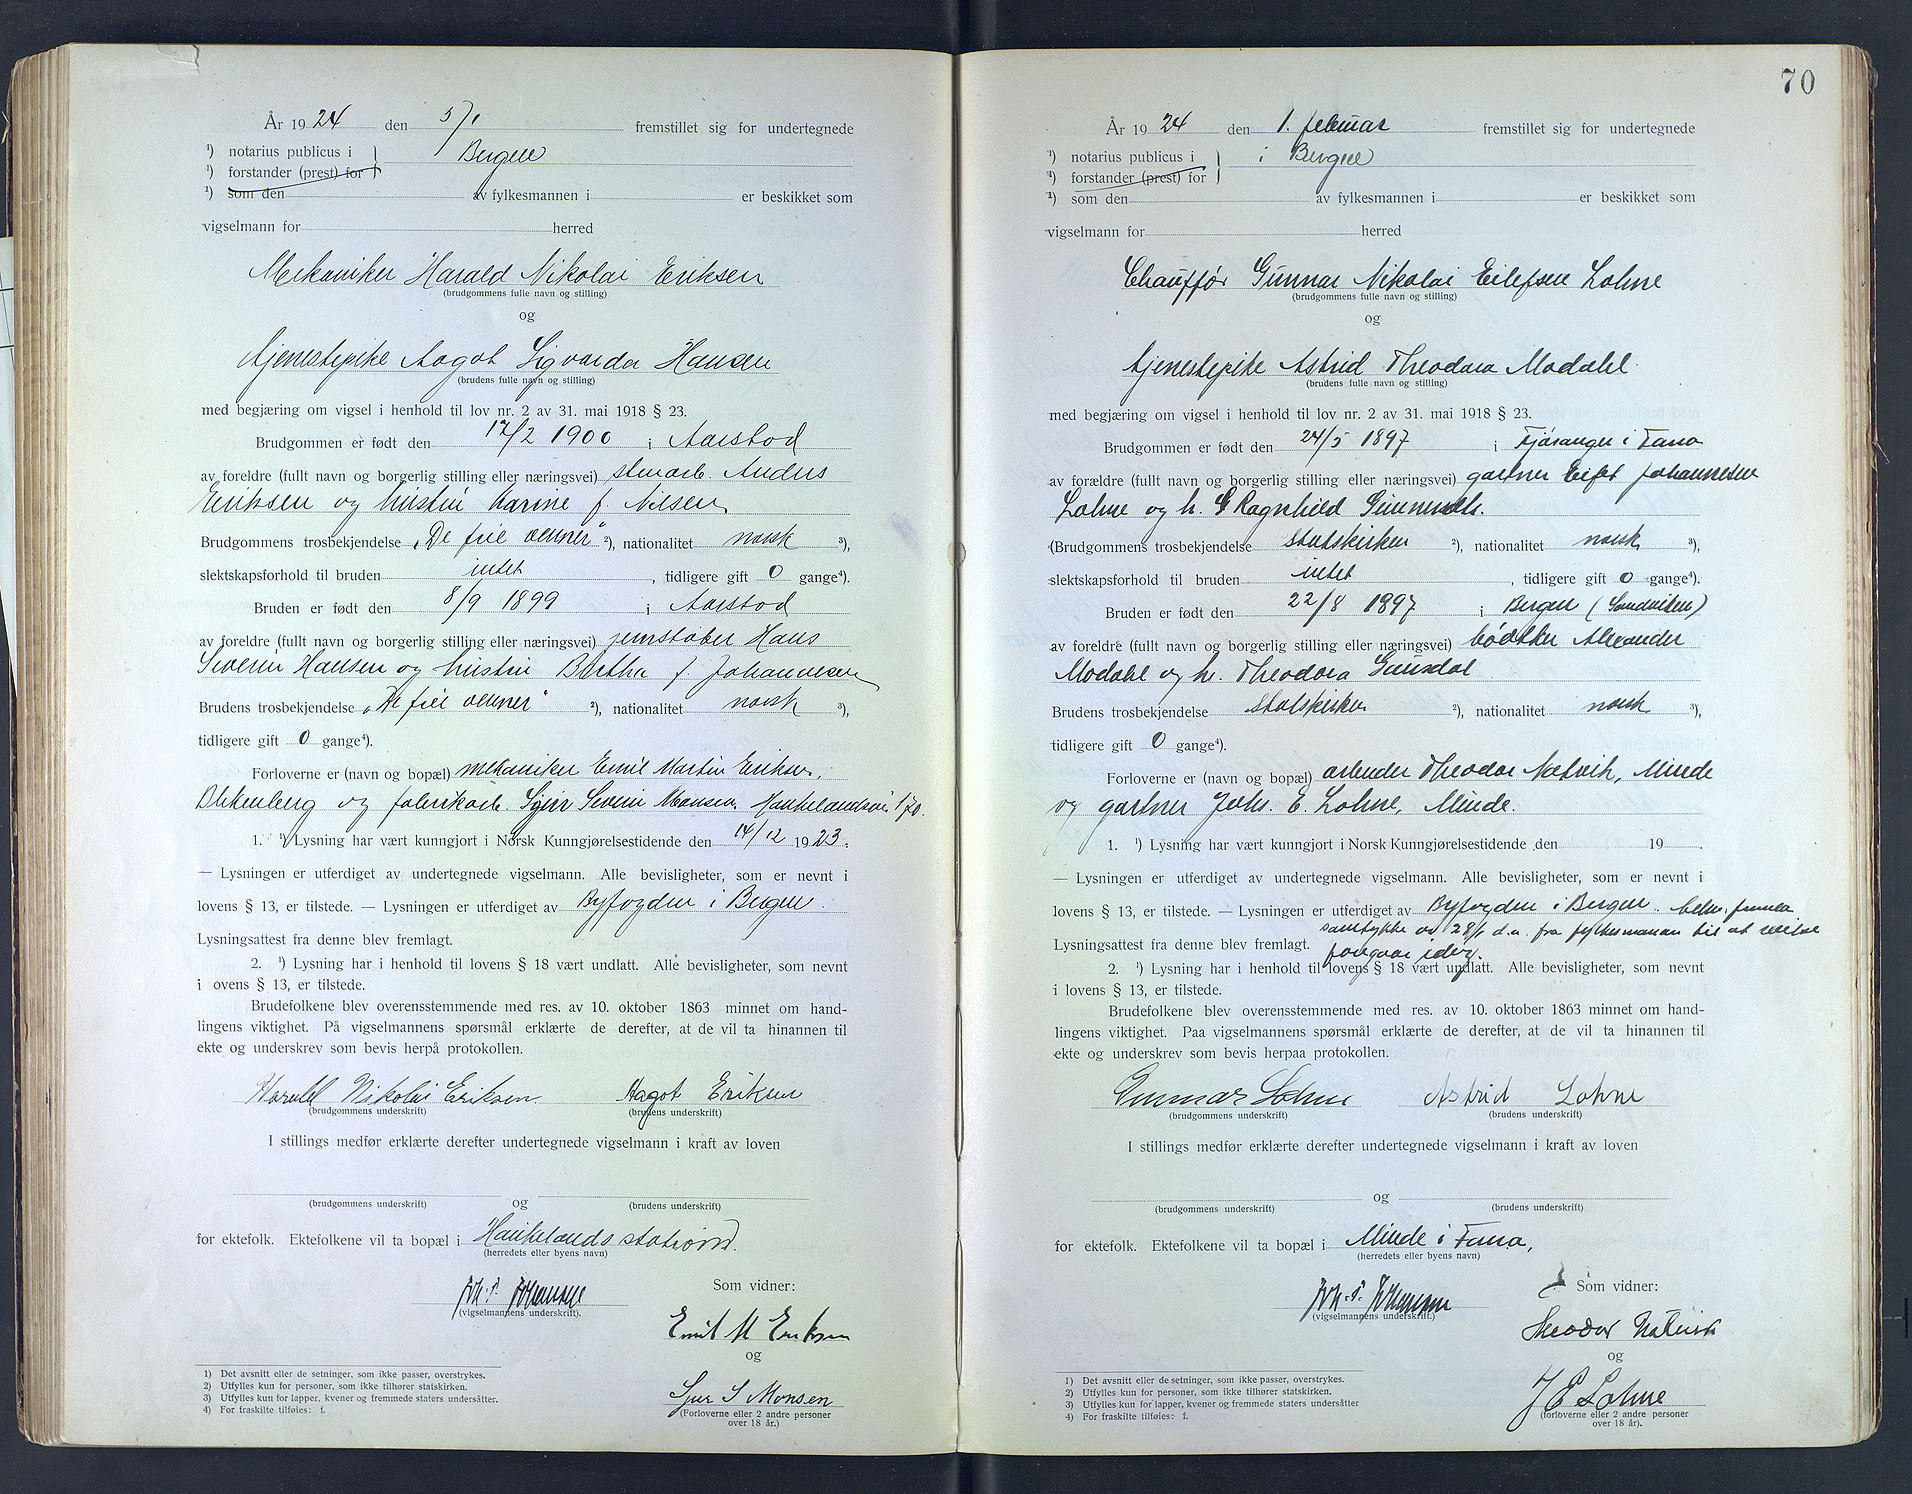 År 1924 den 5/1 fremstillet sig for undertegnede
¹) notarius publicus i Bergen
¹) forstander (prest) for
¹) som den av fylkesmannen i er beskikket som
vigselmann for herred
Mekaniker Harald Nikolai Eriksen
(brudgommens fulle navn og stilling)
og
tjenestepike Aagot Sigvarda Hansen
(brudens fulle navn og stilling)
med begjæring om vigsel i henhold til lov nr. 2 av 31. mai 1918 § 23.
Brudgommen er født den 17/2 1900 i Aarstad
av foreldre (fullt navn og borgerlig stilling eller næringsvei) stenarb. Anders
Eriksen og hustru Karine f. Nilsen
Brudgommens trosbekjendelse „De frie venner" ²), nationalitet norsk ³),
slektskapsforhold til bruden intet, tidligere gift 0 gange⁴).
Bruden er født den 8/9 1899 i Aarstad
av foreldre (fullt navn og borgerlig stilling eller næringsvei) jernstøber Hans
Severin Hansen og hustru Bertha f. Johannesen
Brudens trosbekjendelse „De frie venner" ²), nationalitet norsk ³),
tidligere gift 0 gange⁴).
Forloverne er (navn og bopæl) mekaniker Emil Martin Eriksen,
Blekenberg og fabrikarb. Sjur Severin Monsen Haukelandsvei 170.
1. ¹) Lysning har vært kunngjort i Norsk Kunngjørelsestidende den 14/12 1923.
— Lysningen er utferdiget av undertegnede vigselmann. Alle bevisligheter, som er nevnt i
lovens § 13, er tilstede. — Lysningen er utferdiget av Byfogden i Bergen.
Lysningsattest fra denne blev fremlagt.
2. ¹) Lysning har i henhold til lovens § 18 vært undlatt. Alle bevisligheter, som nevnt
i ovens § 13, er tilstede.
Brudefolkene blev overensstemmende med res. av 10. oktober 1863 minnet om hand-
lingens viktighet. På vigselmannens spørsmål erklærte de derefter, at de vil ta hinannen til
ekte og underskrev som bevis herpå protokollen.
Harald Nikolai Eriksen Aagot Eriksen
(brudgommens underskrift) (brudens underskrift)
I stillings medfør erklærte derefter undertegnede vigselmann i kraft av loven
og
(brudgommens underskrift) (brudens underskrift)
for ektefolk. Ektefolkene vil ta bopæl i Haukelands station.
(herredets eller byens navn)
Som vidner:
(vigselmannens underskrift).
Emil M Eriksen
og
Sjur S Monsen
(Forloverne eller 2 andre personer
over 18 år.)
1) Det avsnitt eller de setninger, som ikke passer, overstrykes.
2) Utfylles kun for personer, som ikke tilhører statskirken.
3) Utfylles kun for lapper, kvener og fremmede staters undersåtter.
4) For fraskilte tilføies: f.
70
År 1924 den 1. februar fremstillet sig for undertegnede
¹) notarius publicus i i Bergen
¹) forstander (prest) for
¹) som den av fylkesmannen i er beskikket som
vigselmann for herred
Chauffør Gunnar Nikolai Eilefsen Lohne
(brudgommens fulle navn og stilling)
og
tjenestepike Astrid Theodora Modahl
(brudens fulle navn og stilling)
med begjæring om vigsel i henhold til lov nr. 2 av 31. mai 1918 § 23.
Brudgommen er født den 24/5 1897 i Fjøsanger i Fana
av forældre (fullt navn og borgerlig stilling eller næringsvei) gartner Eilef Johannesen
Lohne og h. Ragnhild
Brudgommens trosbekjendelse statskirken ²), nationalitet norsk ³),
slektskapsforhold til bruden intet, tidligere gift 0 gange⁴).
Bruden er født den 22/8 1897 i Bergen (Sandviken)
av foreldre (fullt navn og borgerlig stilling eller næringsvei) bødtker Alexander
Modahl og h. Theodora
Brudens trosbekjendelse Statskirken ²), nationalitet norsk ³),
tidligere gift 0 gange⁴).
Forloverne er (navn og bopæl) arbeider Theodor Natvik, Minde
og gartner Johs. E. Lohne, Minde.
1. ¹) Lysning har vært kunngjort i Norsk Kunngjørelsestidende den 19 .
— Lysningen er utferdiget av undertegnede vigselmann. Alle bevisligheter, som er nevnt i
lovens § 13, er tilstede. — Lysningen er utferdiget av Byfogden i Bergen.
samtykke av 28/1 d.a. fra fylkesmannen til at vielse
Lysningsattest fra denne blev fremlagt. foregaar idag.
2. ¹) Lysning har i henhold til lovens § 18 vært undlatt. Alle bevisligheter, som nevnt
i lovens § 13, er tilstede.
Brudefolkene blev overensstemmende med res. av 10. oktober 1863 minnet om hand-
lingens viktighet. Paa vigselmannens spørsmål erklærte de derefter, at de vil ta hinannen til
ekte og underskrev som bevis herpaa protokollen.
Gunnar Lohne Astrid Lohne
(brudgommens underskrift) (brudens underskrift)
I stillings medfør erklærte derefter undertegnede vigselmann i kraft av loven
og
(brudgommens underskrift) (brudens underskrift)
for ektefolk. Ektefolkene vil ta bopæl i Minde i Fana,
(herredets eller byens navn)
Som vidner:
(vigselmannens underskrift.)
Theodor Natvik
og
J E Lohne
(forloverne eller 2 andre personer
over 18 år).
1) Det avsnitt eller de setninger, som ikke passer, overstrykes.
2) Utfylles kun for personer, som ikke tilhører statskirken.
3) Utfylles kun for lapper, kvener og fremmede staters undersåtter
4) For fraskilte tilføies: f.